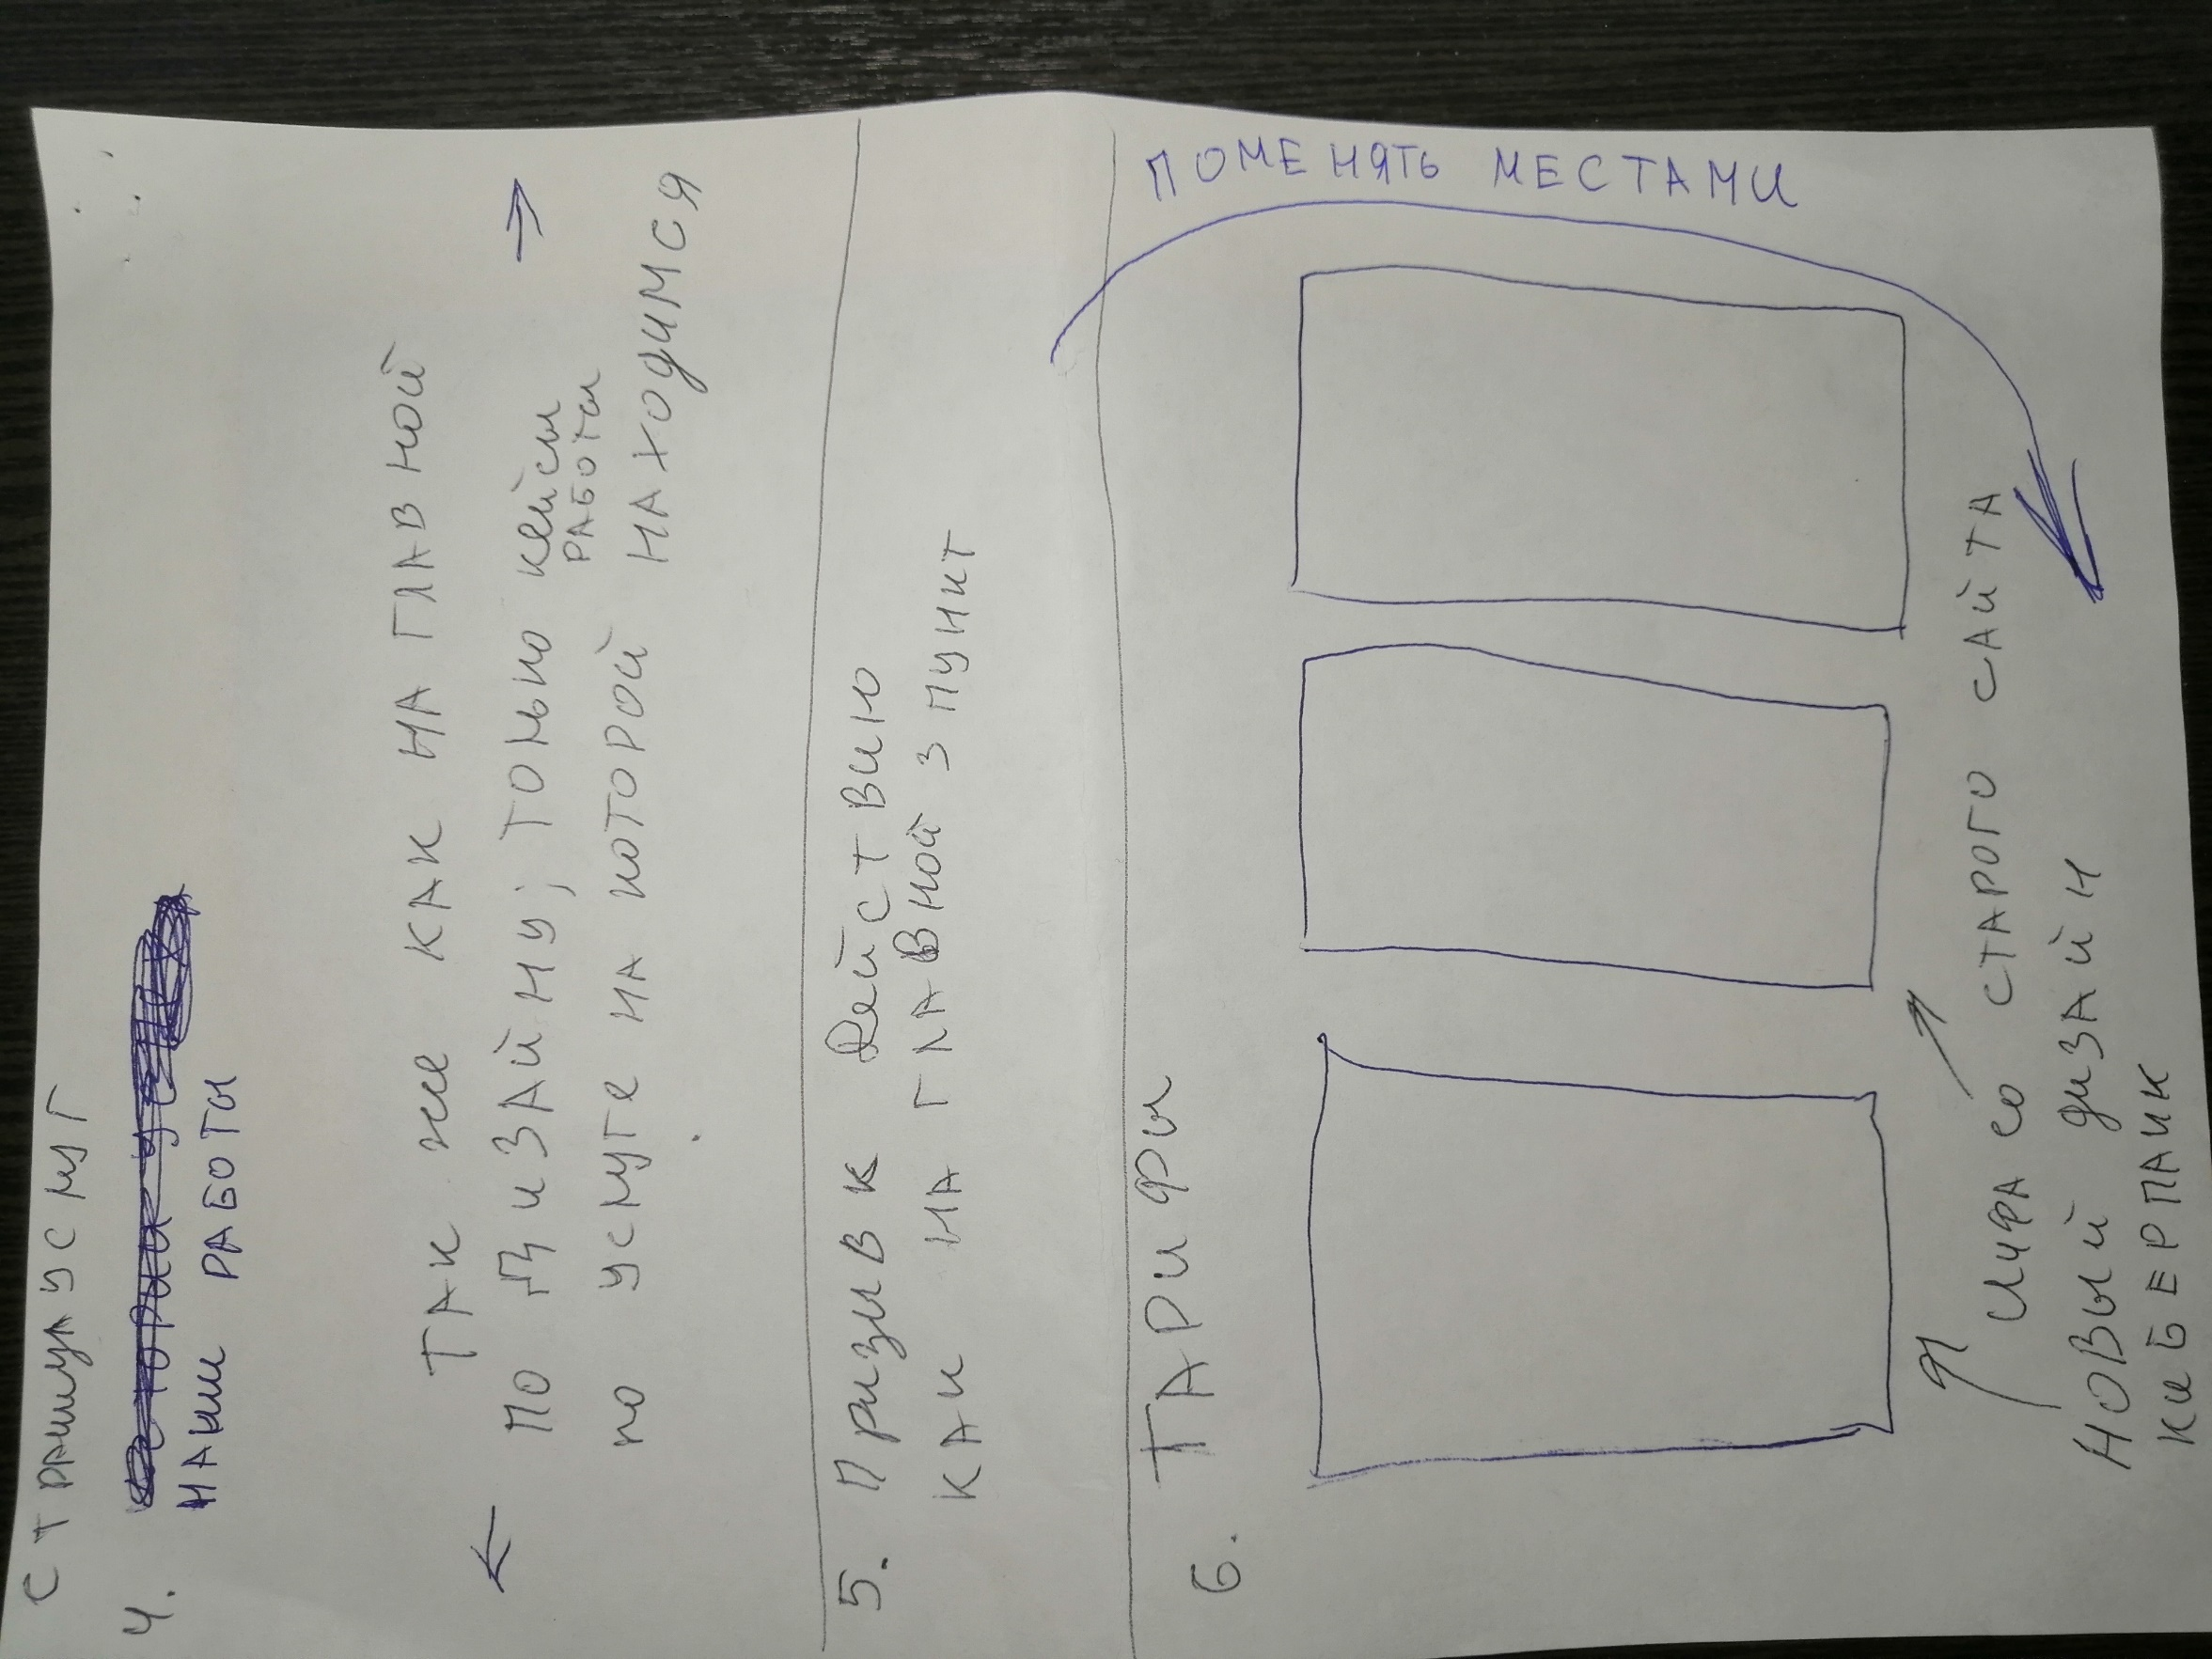 СТРАНИЦА УСЛУГ
4.
НАШИ РАБОТЫ
ТАК же КАК НА ГЛАВНОЙ
← ПО ДИЗАЙНУ; ТОЛЬКО кейсы →
РАБОТЫ
по услуге НА КОТОРОЙ НАХОДИМСЯ
5. Призыв к Действию
КАК НА ГЛАВНОЙ 3 ПУНКТ
6. ТАРИФЫ
ПОМЕНЯТЬ МЕСТАМИ
ИНФА СО СТАРОГО САЙТА
НОВЫЙ ДИЗАЙН
КИБЕРПАНК